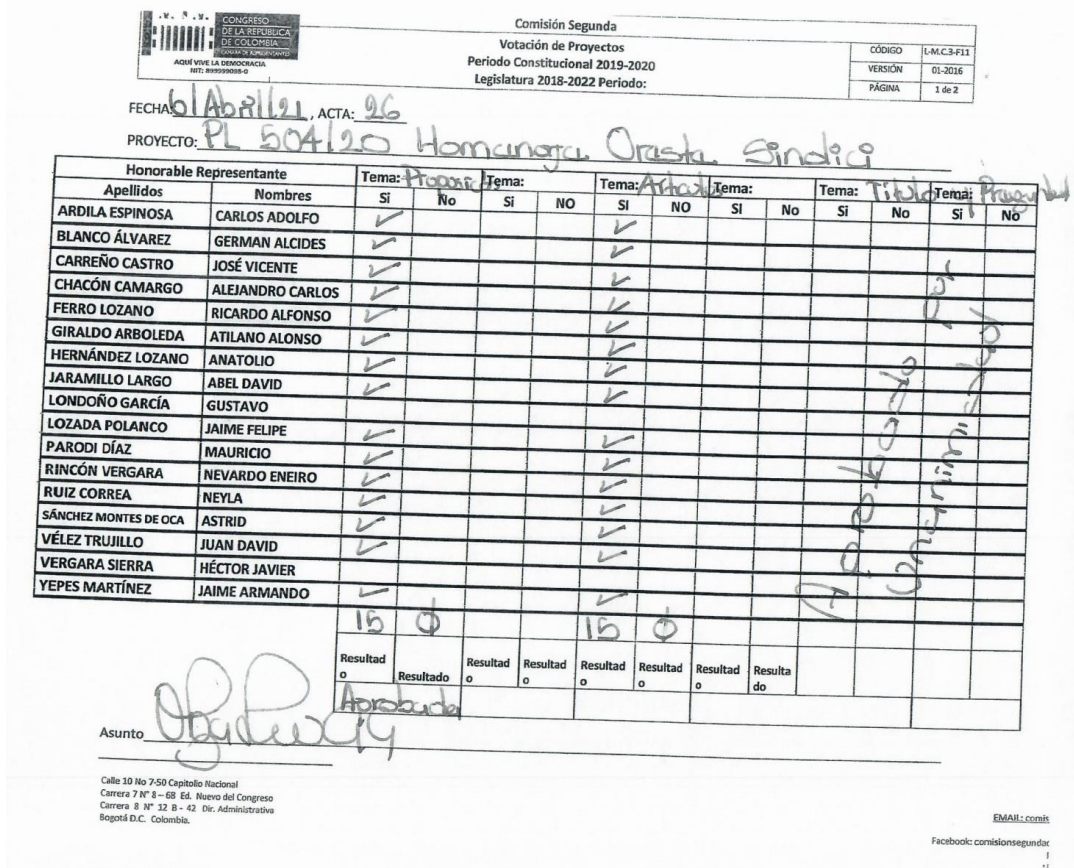 CONGRESO
DE LA REPÚBLICA
DE COLOMBIA
CAMARA DE REPRESENTANTES
AQUÍ VIVE LA DEMOCRACIA
NIT: 899999098-0
Comisión Segunda
Votación de Proyectos
Periodo Constitucional 2019-2020
Legislatura 2018-2022 Periodo:
CÓDIGO L-M.C.3-F11
VERSIÓN 01-2016
PÁGINA 1 de 2
FECHA: 6/Abril/21, ACTA: 26
PROYECTO: PL 504/20 Homanaja Orasta Sindici
Honorable Representante Tema: Tema: Tema: Tema: Tema: Título Tema:
Apellidos Nombres Si No Si NO SI NO SI No Si No Si No
ARDILA ESPINOSA CARLOS ADOLFO ✓ ✓
BLANCO ÁLVAREZ GERMAN ALCIDES ✓ ✓
CARREÑO CASTRO JOSÉ VICENTE ✓ ✓
CHACÓN CAMARGO ALEJANDRO CARLOS ✓ ✓
FERRO LOZANO RICARDO ALFONSO ✓ ✓
GIRALDO ARBOLEDA ATILANO ALONSO ✓ ✓
HERNÁNDEZ LOZANO ANATOLIO ✓ ✓
JARAMILLO LARGO ABEL DAVID ✓ ✓
LONDOÑO GARCÍA GUSTAVO
LOZADA POLANCO JAIME FELIPE ✓ ✓
PARODI DÍAZ MAURICIO ✓ ✓
RINCÓN VERGARA NEVARDO ENEIRO ✓ ✓
RUIZ CORREA NEYLA ✓ ✓
SÁNCHEZ MONTES DE OCA ASTRID ✓ ✓
VÉLEZ TRUJILLO JUAN DAVID ✓ ✓
VERGARA SIERRA HÉCTOR JAVIER
YEPES MARTÍNEZ JAIME ARMANDO ✓ ✓
Aprobado por
Unanimidad
15 Ø 15 Ø
Resultado Resultado Resultado Resultado Resultado Resultado Resultado Resultado
Aprobada
Asunto
Calle 10 No 7-50 Capitolio Nacional
Carrera 7 N° 8 – 68 Ed. Nuevo del Congreso
Carrera 8 N° 12 B - 42 Dir. Administrativa
Bogotá D.C. Colombia.
EMAIL: comis
Facebook: comisionsegundac